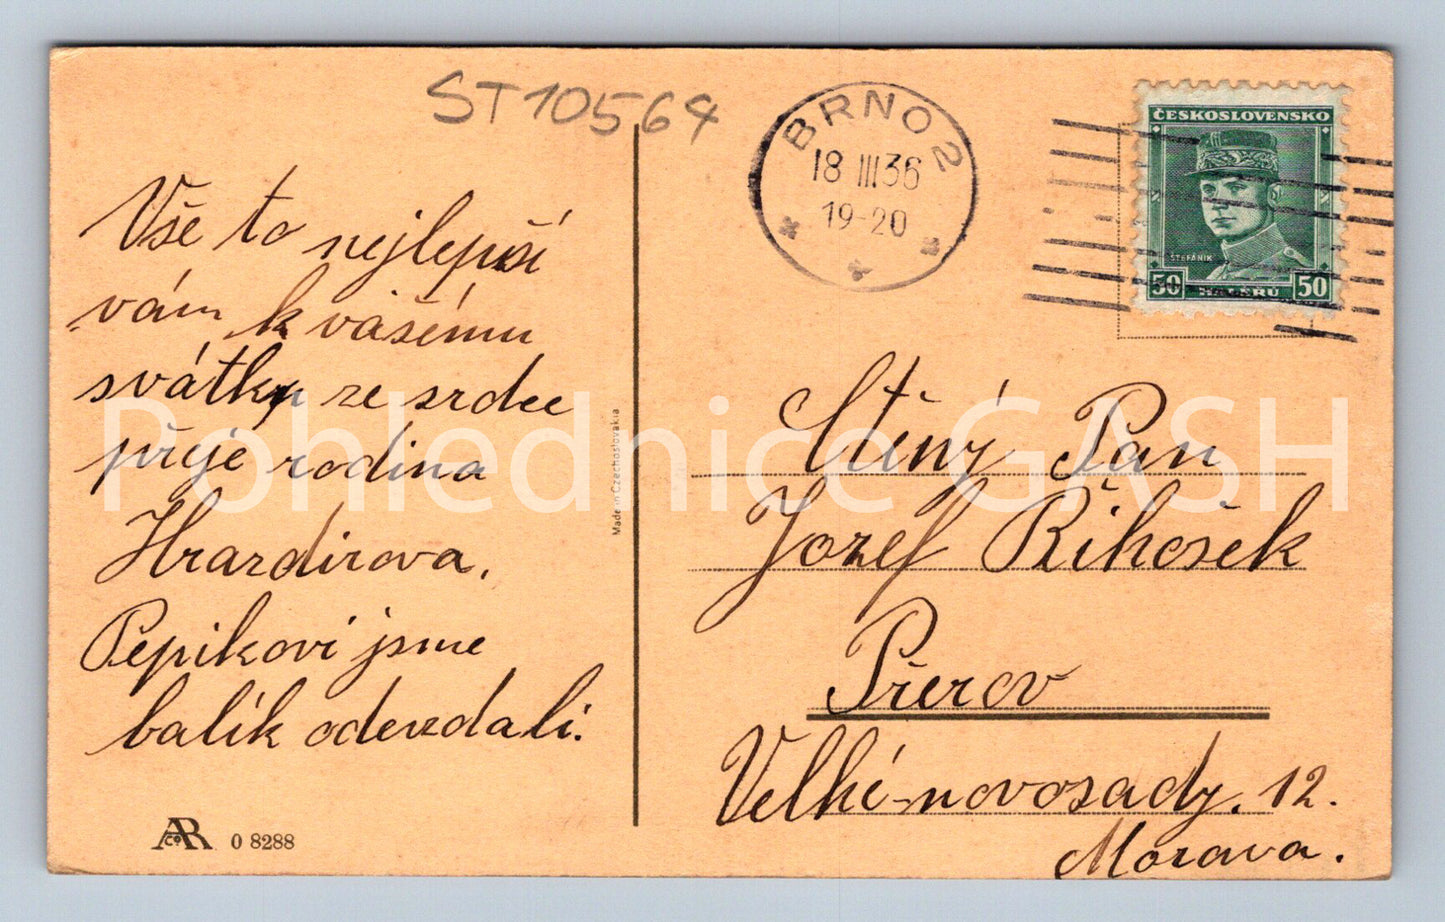 ST10564
Vše to nejlepší
vám k vašému
svátku ze srdce
přeje rodina
Hrazdirova.
Pepikovi jsme
balík odevzdali.
AR Co
0 8288
Made in Czechoslovakia
BRNO 2
18 III 36
19-20
ČESKOSLOVENSKO
ŠTEFÁNIK
50 HALÉRŮ 50
Ctěný Pan
Jozef Řihošek
Přerov
Velké-novosady. 12.
Morava.
Pohlednice GASH